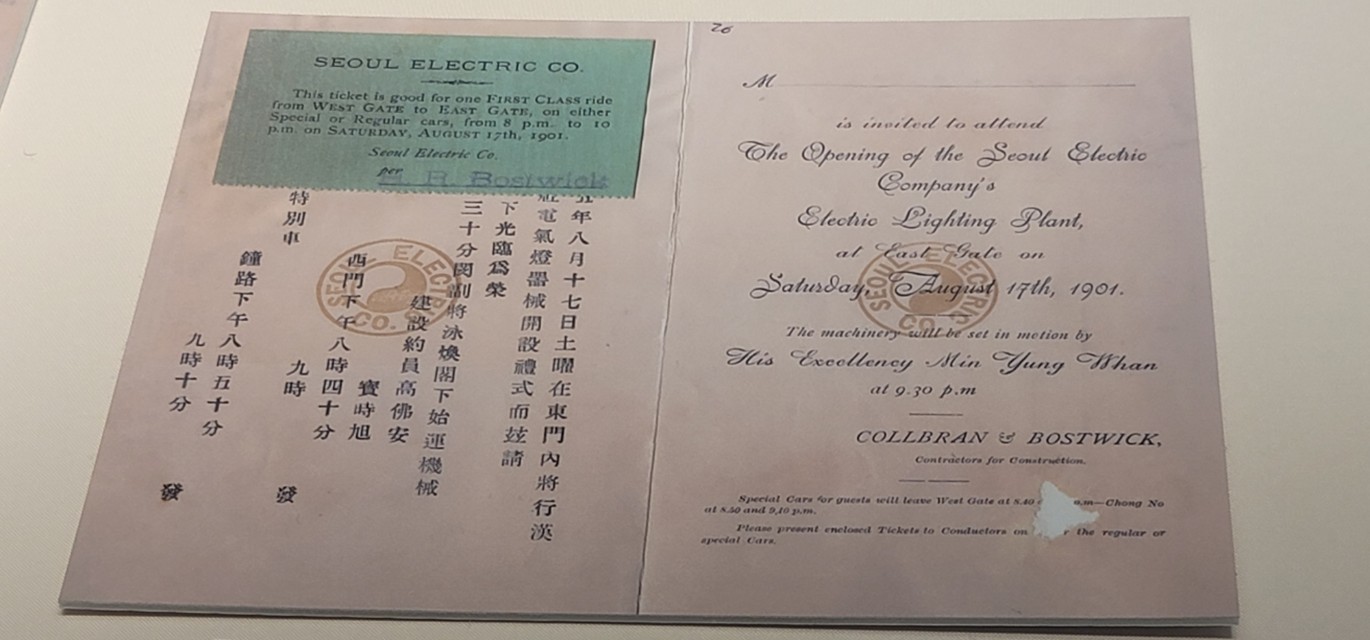 SEOUL ELECTRIC CO.
This ticket is good for one FIRST CLASS ride
from WEST GATE to EAST GATE, on either
Special or Regular cars, from 8 p.m. to 10
p.m. on SATURDAY, AUGUST 17th, 1901.
Seoul Electric Co.
per
H. R. Bostwick
年八月十七日土曜在東門內將行漢
電氣燈器械開設禮式而玆請
下光臨爲榮
三十分閔副將泳煥閣下始運機械
建設約員高佛安
寶時旭
特別車
西門下午八時四十分
九時
發
鐘路下午八時五十分
九時十分
發
SEOUL ELECTRIC CO.
20
M
is invited to attend
The Opening of the Seoul Electric
Company's
Electric Lighting Plant,
at East Gate on
Saturday, August 17th, 1901.
The machinery will be set in motion by
His Excellency Min Yung Whan
at 9.30 p.m
COLLBRAN & BOSTWICK,
Contractors for Construction.
Special Cars for guests will leave West Gate at 8.40 p.m—Chong No
at 8.50 and 9,10 p.m.
Please present enclosed Tickets to Conductors on the regular or
special Cars.
SEOUL ELECTRIC CO.